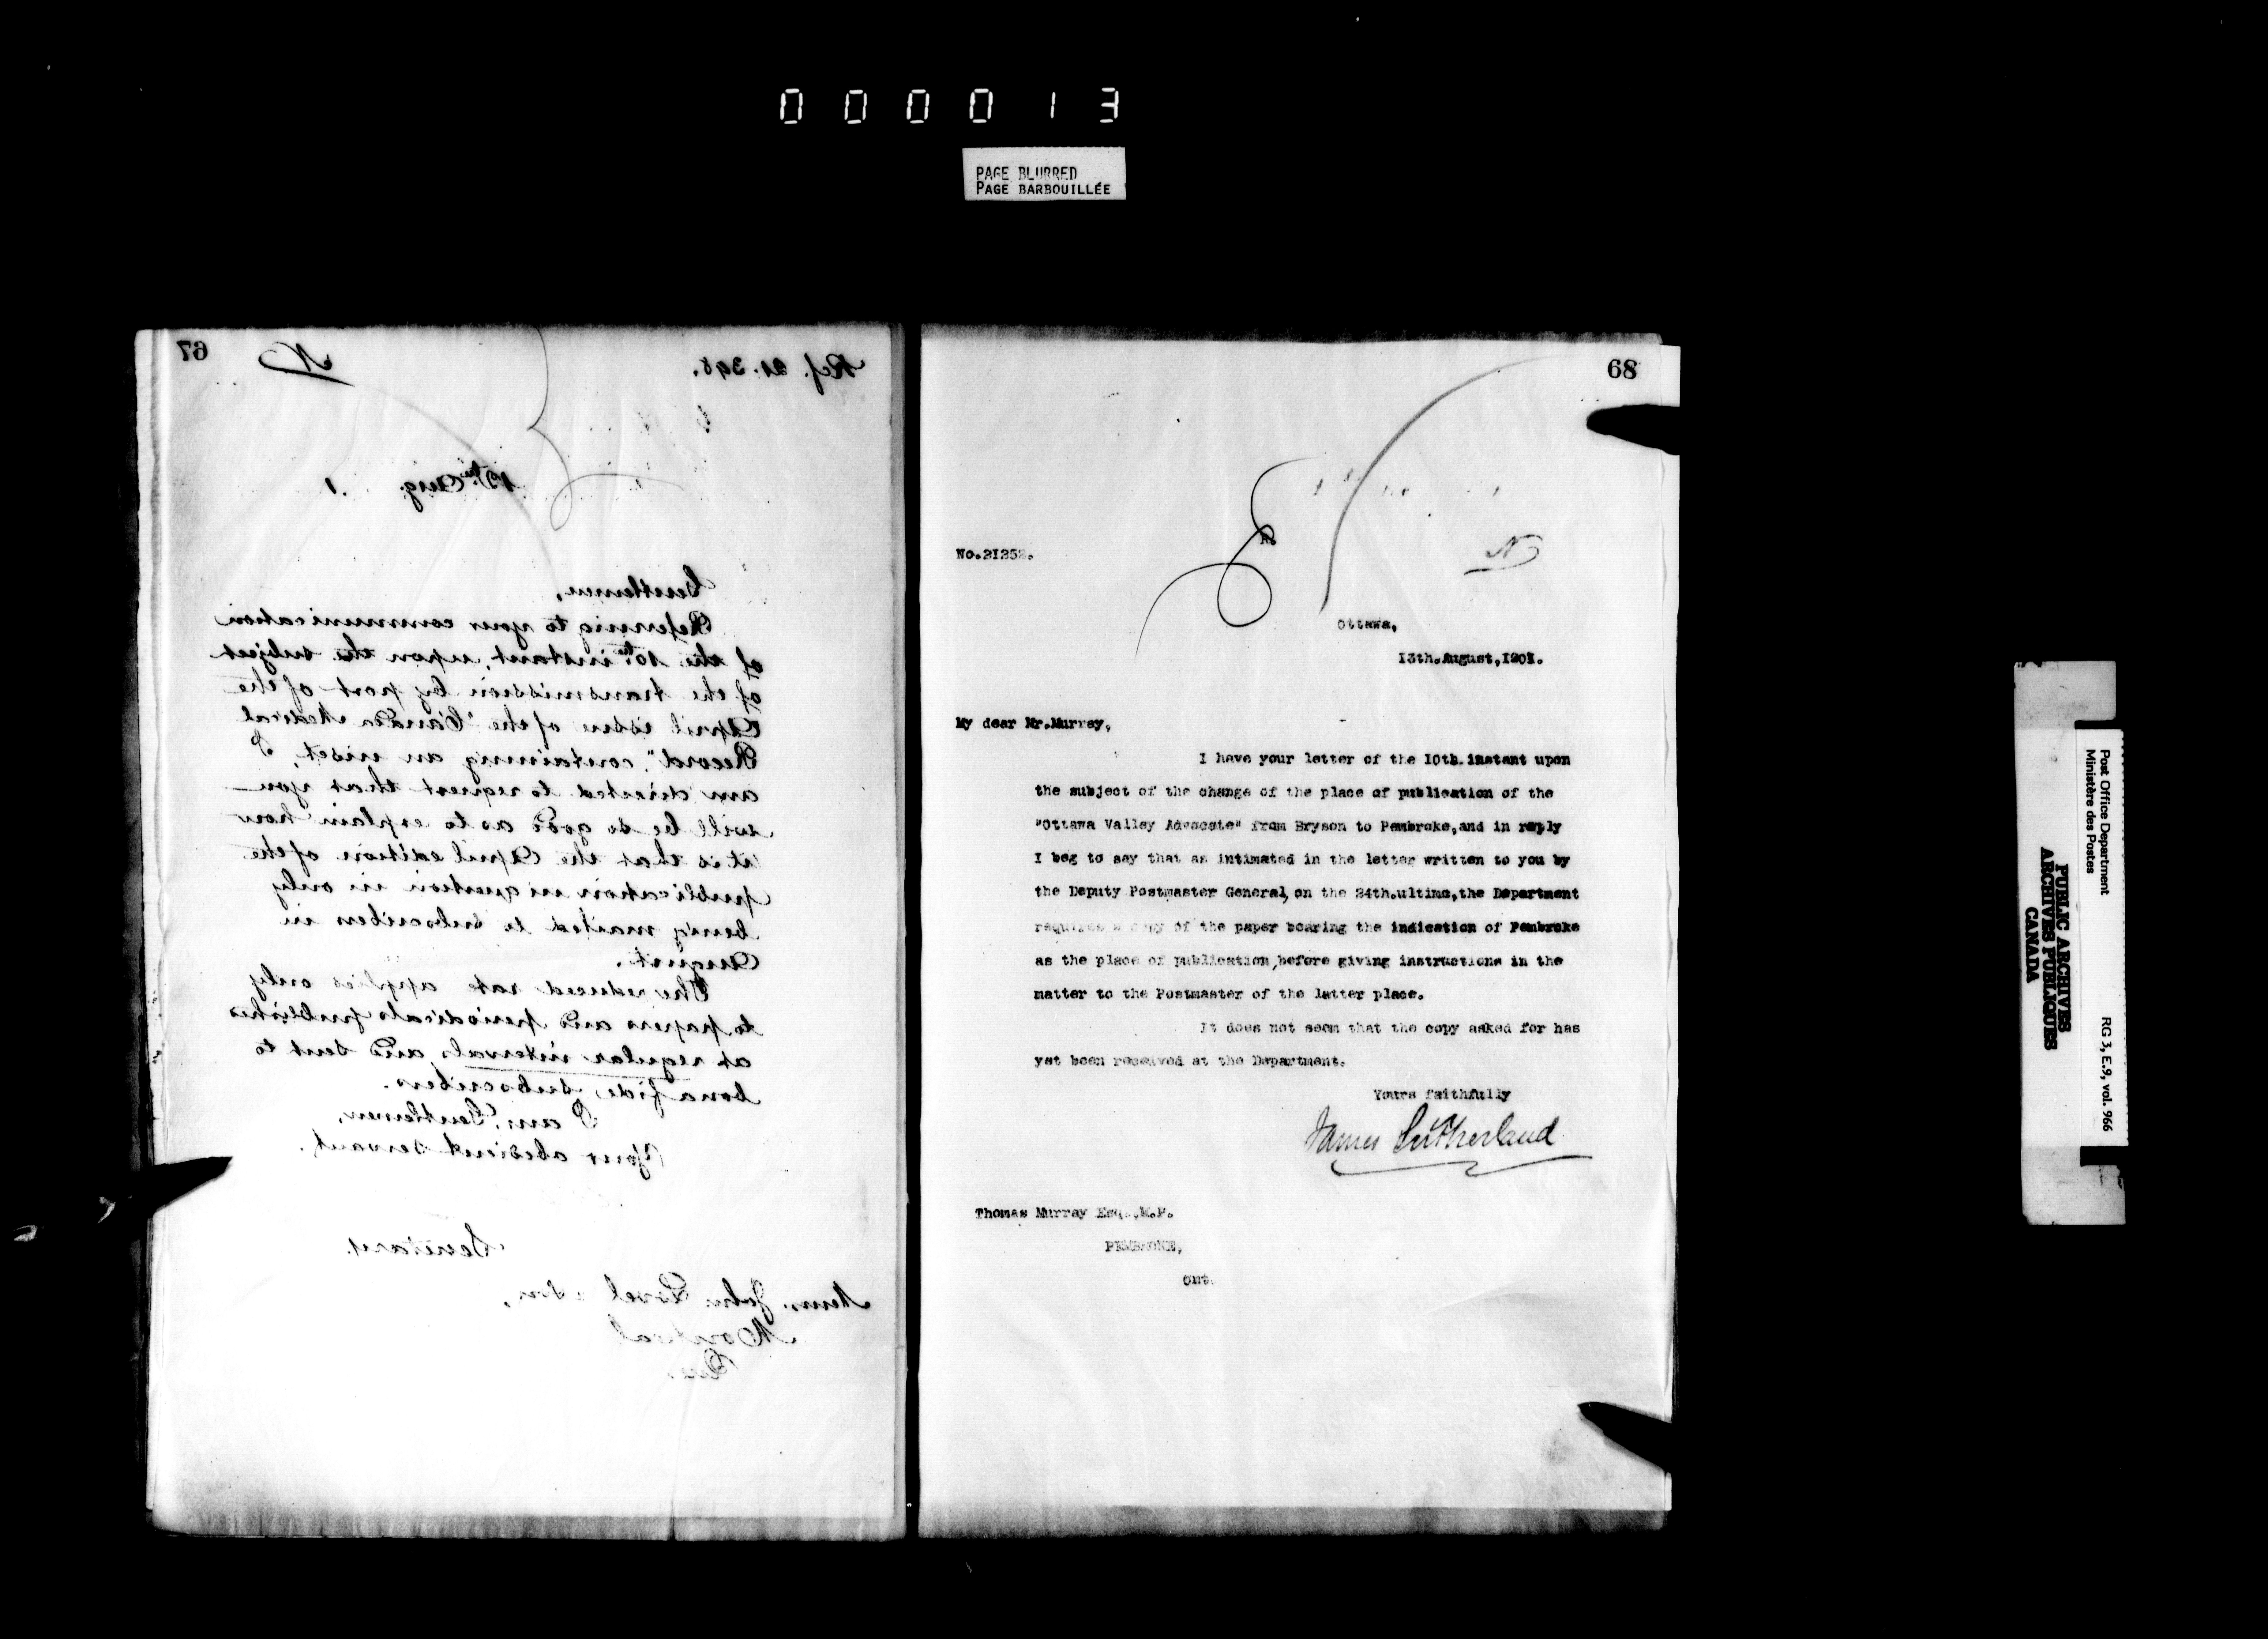 000013
PAGE BLURRED
PAGE BARBOUILLÉE
67
N
Ref. 21.398.
13th Aug. 1
Gentlemen,
Referring to your communication
of the 10th instant, upon the subject
of the transmission by post of the
April issue of the "Canada Medical
Record", containing an inset, I
am directed to request that you
will be so good as to explain how
it is that the April edition of the
publication in question in only
being mailed to subscribers in
August.
The reduced rate applies only
to papers and periodicals published
at regular intervals and sent to
bona fide subscribers.
I am, Gentlemen,
Your obedient servant,
Secretary.
Messrs. John Lovel & Son,
Montreal
Que.
68
R.
No.21252.
N
Ottawa,
13th.August,1901.
My dear Mr.Murray,
I have your letter of the 10th.instant upon
the subject of the change of the place of publication of the
"Ottawa Valley Advocate" from Bryson to Pembroke,and in reply
I beg to say that as intimated in the letter written to you by
the Deputy Postmaster General, on the 24th.ultimo,the Department
requires a copy of the paper bearing the indication of Pembroke
as the place of publication,before giving instructions in the
matter to the Postmaster of the latter place.
It does not seem that the copy asked for has
yet been received at the Department.
Yours faithfully
James Sutherland
Thomas Murray Esq.,M.P.
PEMBROKE,
Ont.
Post Office Department
Ministère des Postes
RG 3, E.9, vol. 966
PUBLIC ARCHIVES
ARCHIVES PUBLIQUES
CANADA